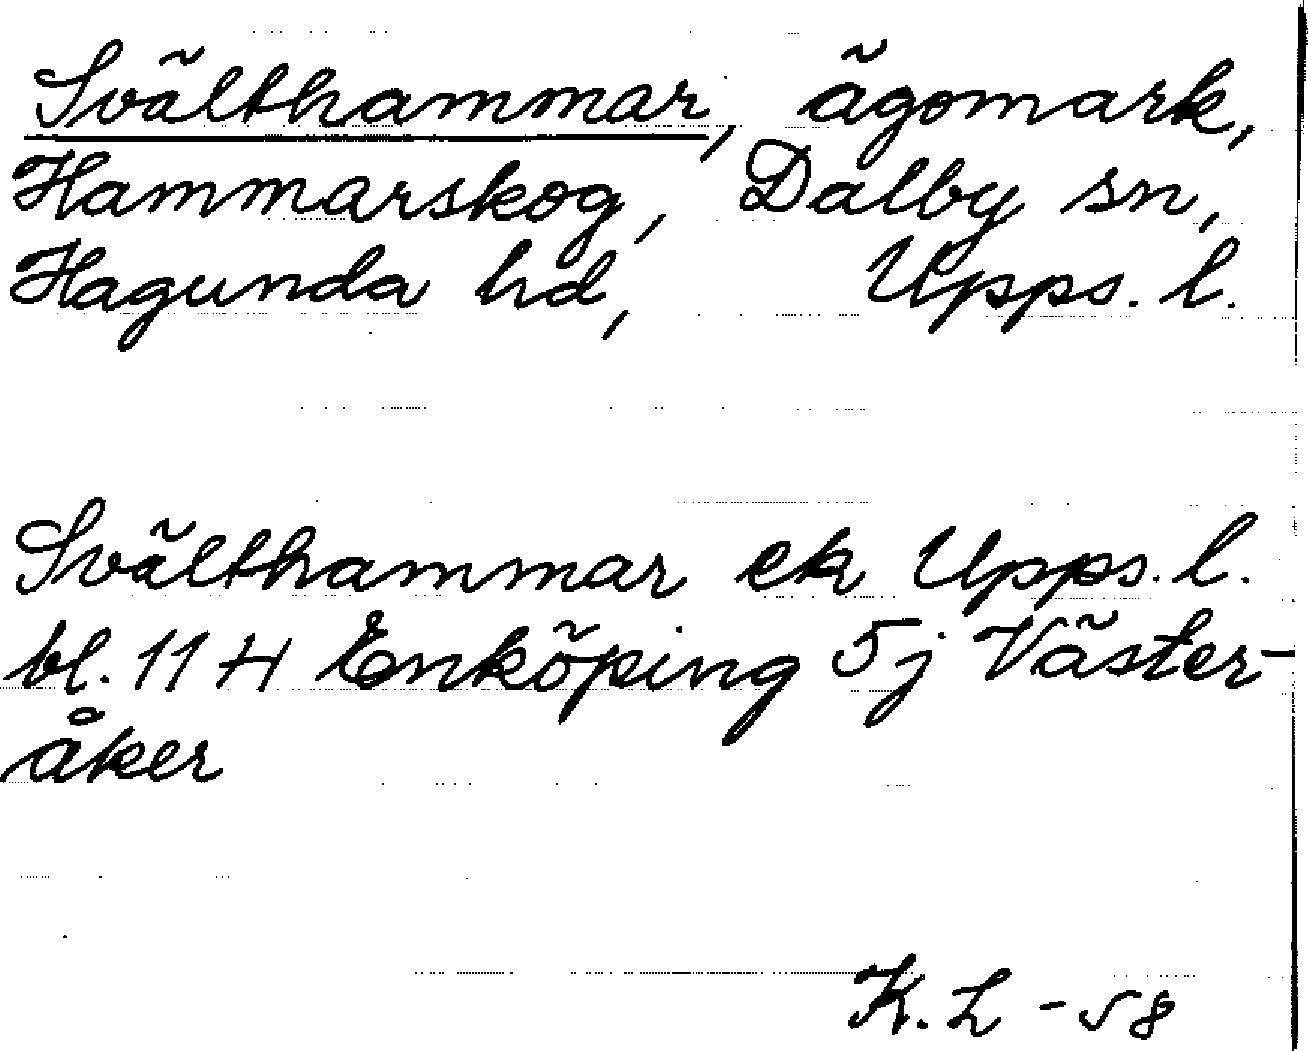 Svälthammar, ägomark,
Hammarskog, Dalby sn,
Hagunda hd, Upps. l.
Svälthammar ek Upps. l.
bl. 11 H Enköping 5j Väster-
åker
K. L -58